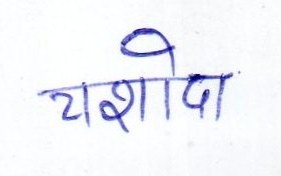 यशोदा